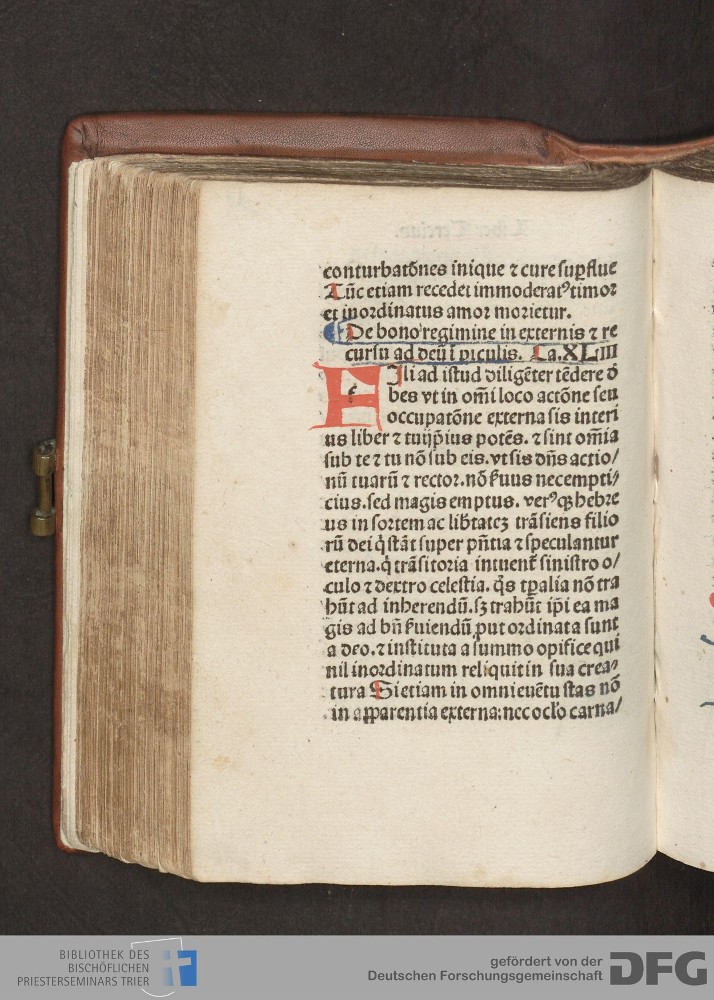 conturbatōnes inique ⁊ cure suꝑflue
Tūc etiam recedet immoderatꝰ timor
et inordinatus amor morietur.
De bono regimine in externis ⁊ re
cursu ad deū ī ꝑiculis. Ca. XLIII
FIli ad istud diligēter tēdere ō
bes vt in om̄i loco actōne seu
occupatōne externa sis interi
us liber ⁊ tui ip̄ius potēs. ⁊ sint om̄ia
sub te ⁊ tu nō sub eis. vt sis dn̄s actio/
nū tuarū ⁊ rector. nō s̄uus nec empti/
cius. sed magis emptus. verꝰ qꝫ hebre
us in sortem ac lib̄tateꝫ trāsiens filio
rū dei q̇ stāt super p̄ntia ⁊ speculantur
eterna. q̇ trāsitoria intuent᷑ sinistro o/
culo ⁊ dextro celestia. q̇s tp̄alia nō tra
hūt ad inherendū. sꝫ trahūt ip̄i ea ma
gis ad bn̄ s̄uiendū ꝓut ordinata sunt
a deo. ⁊ instituta a summo opifice qui
nil inordinatum reliquit in sua crea/
tura Si etiam in omni euētu stas nō
in apparentia externa: nec oclo carna/
BIBLIOTHEK DES
BISCHÖFLICHEN
PRIESTERSEMINARS TRIER
gefördert von der
Deutschen Forschungsgemeinschaft
DFG